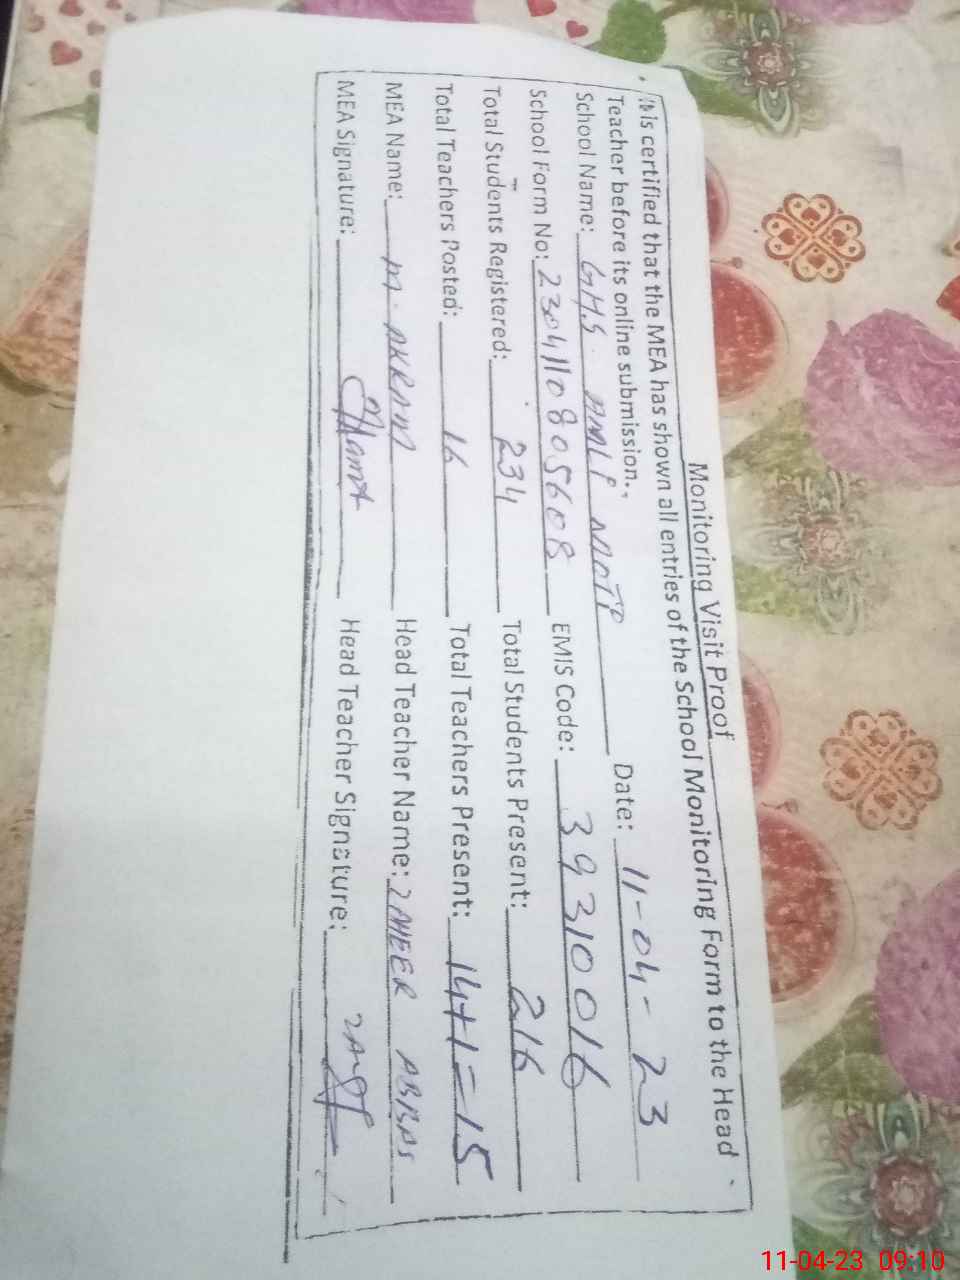 Monitoring Visit Proof
It is certified that the MEA has shown all entries of the School Monitoring Form to the Head
Teacher before its online submission.
School Name: G.H.S Date: 11-04-23
School Form No: 2304110805608 EMIS Code: 39310016
Total Students Registered: 234 Total Students Present: 216
Total Teachers Posted: 16 Total Teachers Present: 14+1=15
MEA Name: M. AKRAM Head Teacher Name: ZAHEER ABBAS
MEA Signature: Head Teacher Signature:
11-04-23 09:10